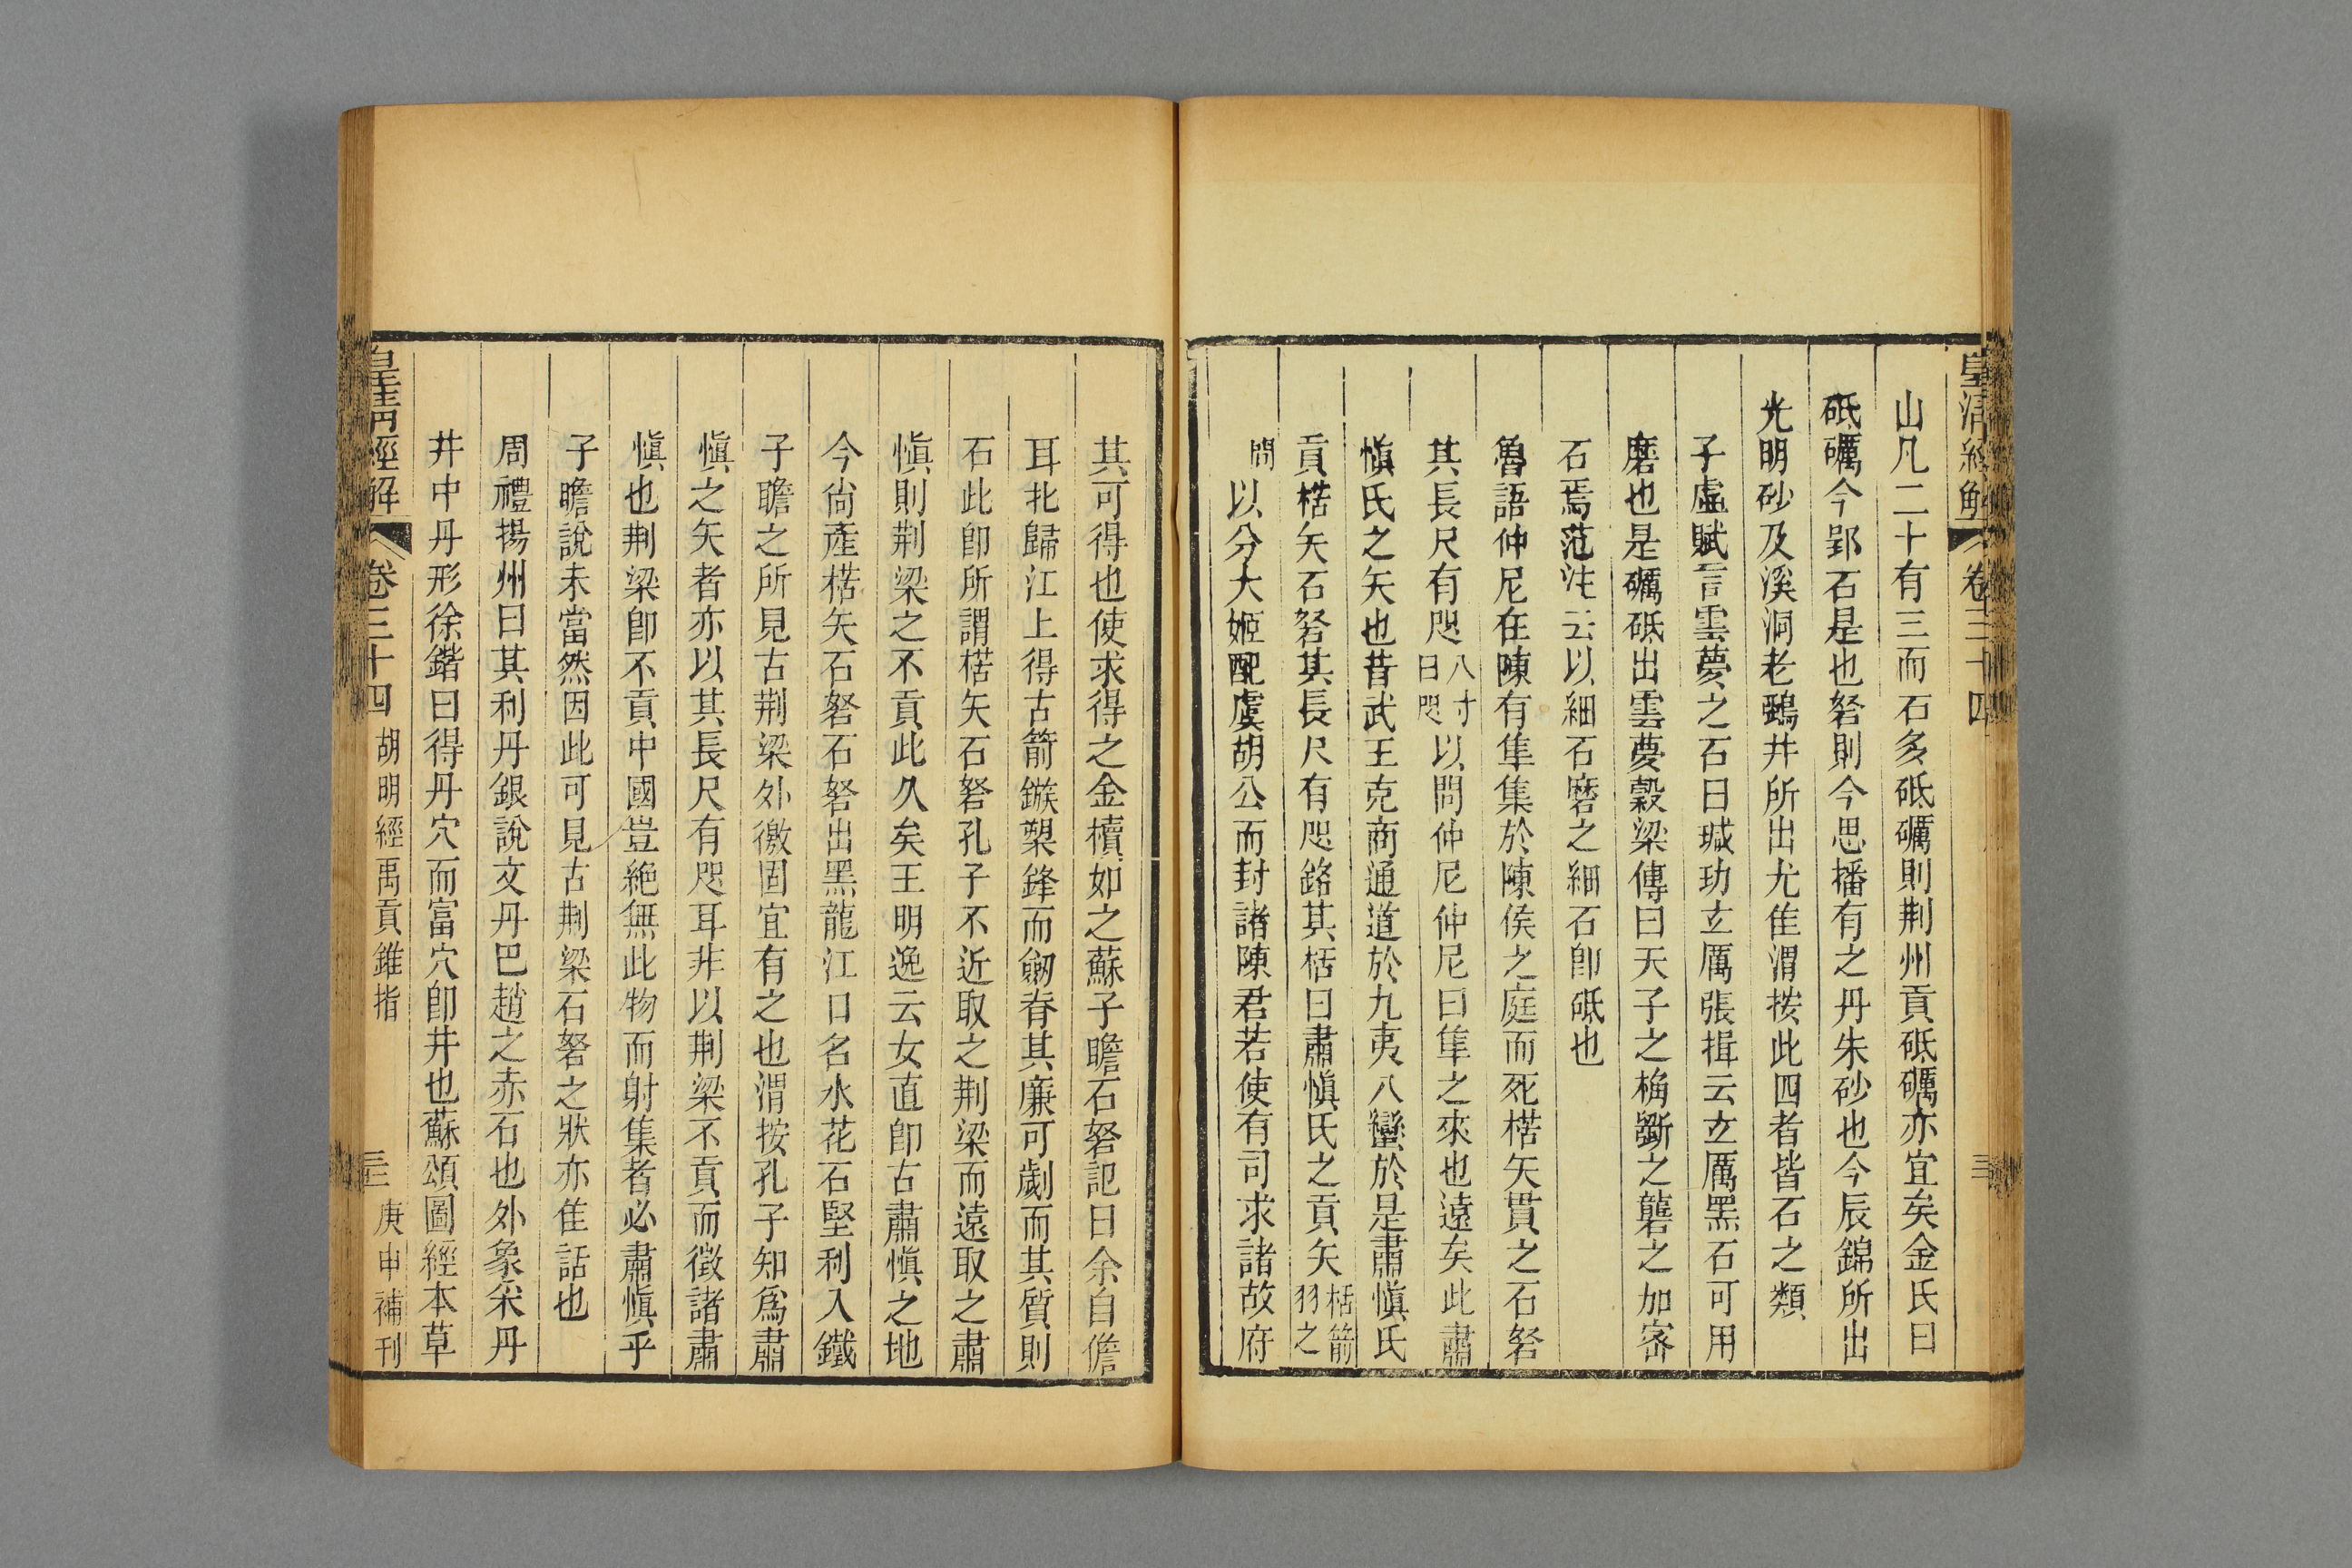 皇清經解
卷三十四
三
山凡二十有三而石多砥礪則荆州貢砥礪亦宜矣金氏曰
砥礪今郢石是也砮則今思播有之丹朱砂也今辰錦所出
光明砂及溪洞老鵶井所出尤佳渭按此四者皆石之類
子虛賦言雲夢之石曰瑊玏玄厲張揖云玄厲黑石可用
磨也是礪砥出雲夢穀梁傳曰天子之桷斲之礱之加密
石焉范注云以細石磨之細石卽砥也
魯語仲尼在陳有隼集於陳侯之庭而死楛矢貫之石砮
其長尺有咫八寸曰咫以問仲尼仲尼曰隼之來也遠矣此肅
愼氏之矢也昔武王克商通道於九夷八蠻於是肅愼氏
貢楛矢石砮其長尺有咫銘其栝曰肅愼氏之貢矢栝箭羽之
間以分大姬配虞胡公而封諸陳君若使有司求諸故府
其可得也使求得之金櫝如之蘇子瞻石砮記曰余自儋
耳北歸江上得古箭鏃槊鋒而劒脊其廉可劌而其質則
石此卽所謂楛矢石砮孔子不近取之荆梁而遠取之肅
愼則荆梁之不貢此久矣王明逸云女直卽古肅愼之地
今尙產楛矢石砮石砮出黑龍江口名水花石堅利入鐵
子瞻之所見古荆梁外徼固宜有之也渭按孔子知爲肅
愼之矢者亦以其長尺有咫耳非以荆梁不貢而徵諸肅
愼也荆梁卽不貢中國豈絶無此物而射集者必肅愼乎
子瞻說未當然因此可見古荆梁石砮之狀亦佳話也
周禮揚州曰其利丹銀說文丹巴趙之赤石也外象采丹
井中丹形徐鍇曰得丹穴而富穴卽井也蘇頌圖經本草
皇淸經解
卷三十四
胡明經禹貢錐指
三
庚申補刊